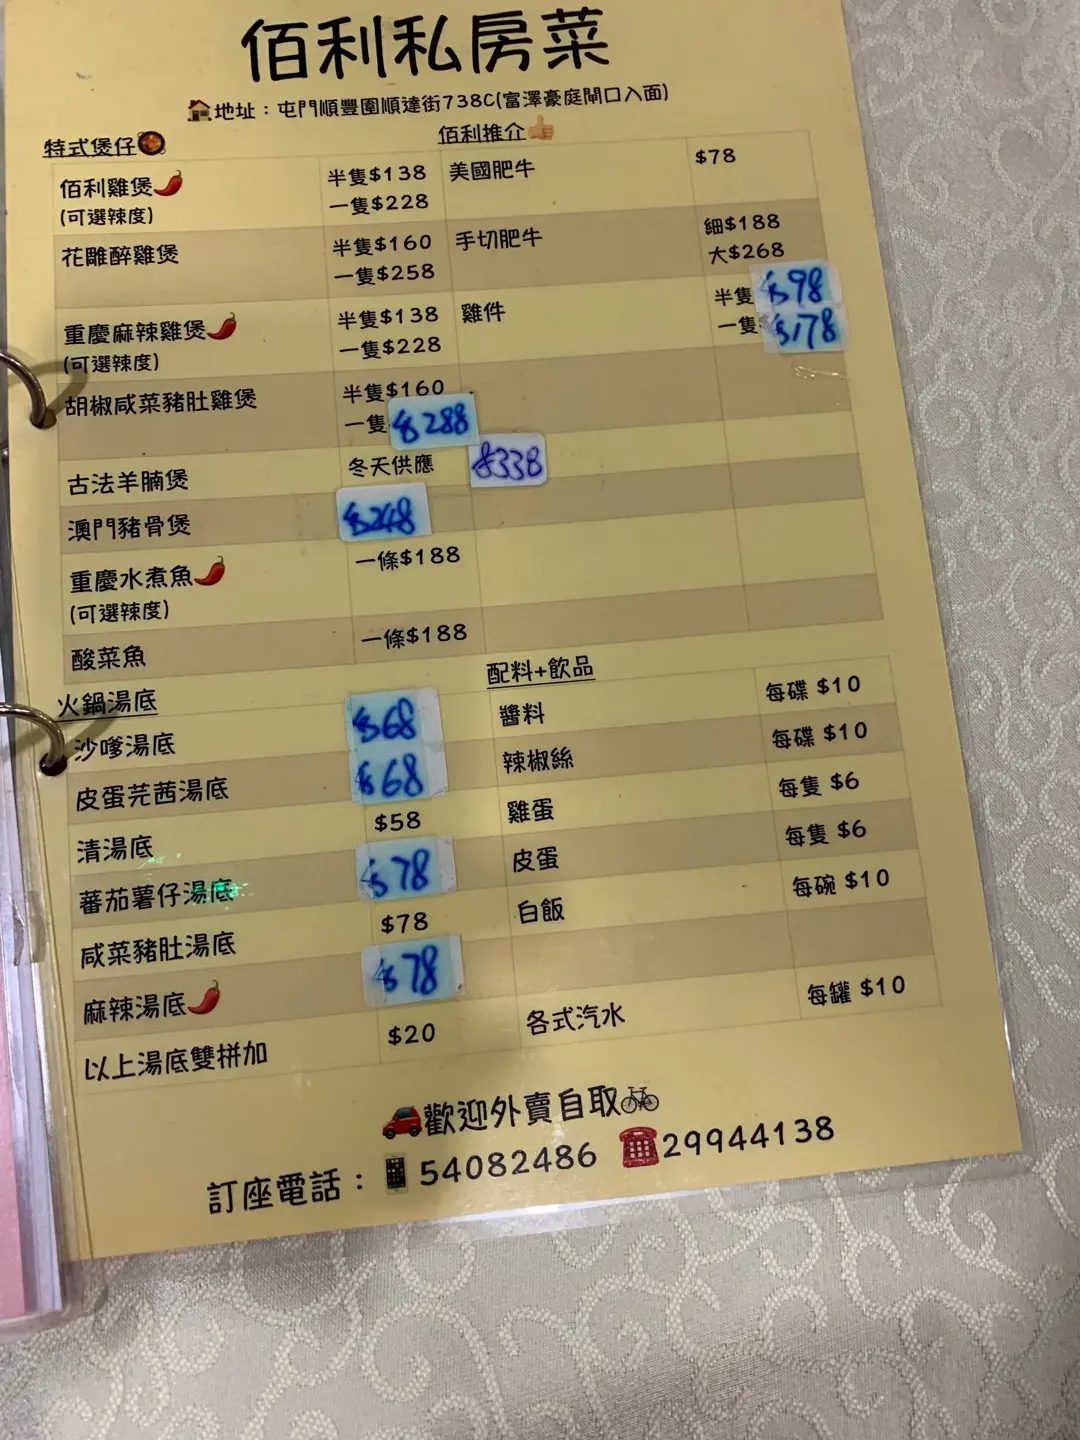 佰利私房菜
地址：屯門順豐圍順達街738C(富澤豪庭閘口入面)
特式煲仔
佰利雞煲 半隻$138
(可選辣度) 一隻$228
花雕醉雞煲 半隻$160
一隻$258
重慶麻辣雞煲 半隻$138
(可選辣度) 一隻$228
胡椒咸菜豬肚雞煲 半隻$160
一隻 $288
古法羊腩煲 冬天供應 $338
澳門豬骨煲 $248
重慶水煮魚 一條$188
(可選辣度)
酸菜魚 一條$188
佰利推介
美國肥牛 $78
手切肥牛 細$188
大$268
雞件 半隻 $98
一隻 $178
火鍋湯底
沙嗲湯底 $68
皮蛋芫茜湯底 $68
清湯底 $58
蕃茄薯仔湯底 $78
咸菜豬肚湯底 $78
麻辣湯底 $78
以上湯底雙拼加 $20
配料+飲品
醬料 每碟 $10
辣椒絲 每碟 $10
雞蛋 每隻 $6
皮蛋 每隻 $6
白飯 每碗 $10
各式汽水 每罐 $10
歡迎外賣自取
訂座電話： 54082486 29944138